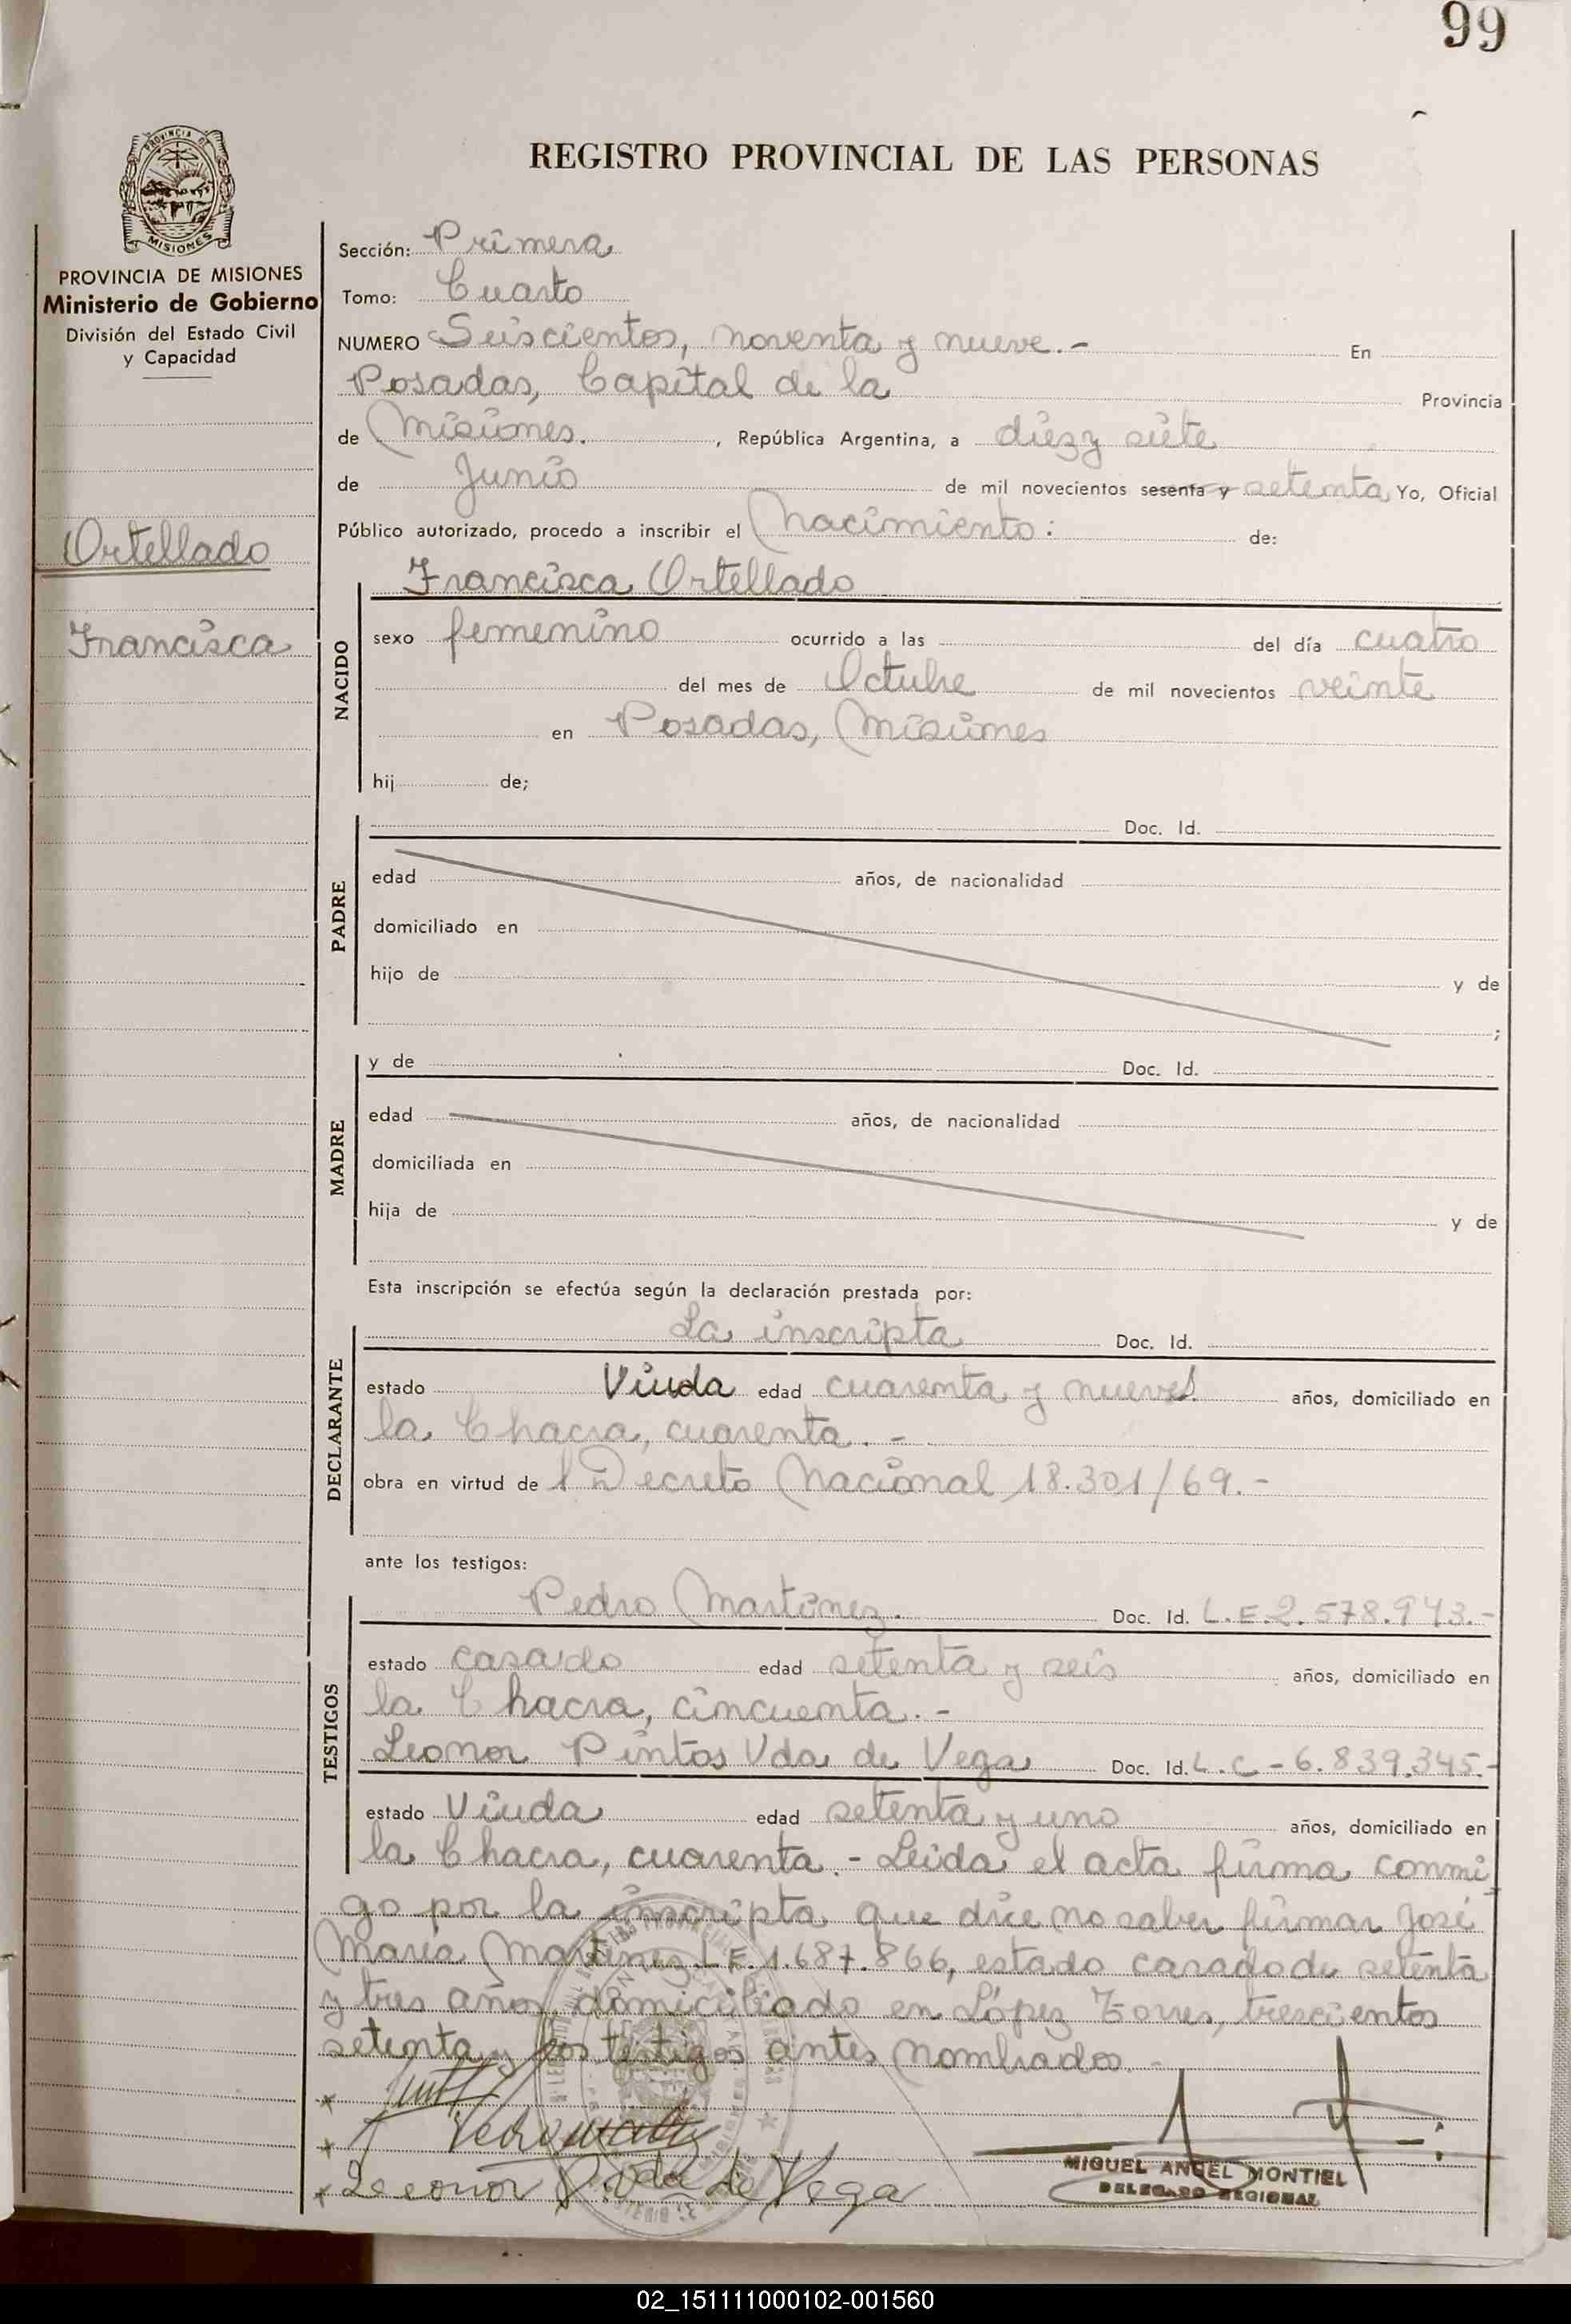 99
REGISTRO PROVINCIAL DE LAS PERSONAS
PROVINCIA DE
MISIONES
PROVINCIA DE MISIONES
Ministerio de Gobierno
División del Estado Civil
y Capacidad
Ortellado
Francisca
Sección: Primera
Tomo: Cuarto
NUMERO Seiscientos, noventa y nueve.- En
Posadas, Capital de la Provincia
de Misiones. , República Argentina, a diez y siete
de Junio de mil novecientos sesenta y setenta Yo, Oficial
Público autorizado, procedo a inscribir el Nacimiento: de:
Francisca Ortellado
NACIDO
sexo femenino ocurrido a las del día cuatro
del mes de Octubre de mil novecientos veinte
en Posadas, Misiones
hij de;
PADRE
Doc. Id.
edad años, de nacionalidad
domiciliado en
hijo de y de
;
MADRE
y de Doc. Id.
edad años, de nacionalidad
domiciliada en
hija de y de
Esta inscripción se efectúa según la declaración prestada por:
DECLARANTE
La inscripta Doc. Id.
estado Viuda edad cuarenta y nueve años, domiciliado en
la Chacra, cuarenta.-
obra en virtud de l Decreto Nacional 18.301/69.-
ante los testigos:
TESTIGOS
Pedro Martinez. Doc. Id. L.E.2.578.943.-
estado casado edad setenta y seis años, domiciliado en
la Chacra, cincuenta.-
Leonor Pintos Vda de Vega Doc. Id. L.C-6.839.345.-
estado Viuda edad setenta y uno años, domiciliado en
la Chacra, cuarenta.- Leida el acta firma conmi
go por la inscripta que dice no saber firmar José
María Martinez L.E.1.687.866, estado casado de setenta
y tres años domiciliado en López Torres, trescientos
setenta y los testigos antes nombrados.-
Leonor P. vda de Vega
MIGUEL ANGEL MONTIEL
DELEGADO REGIONAL
02_151111000102-001560